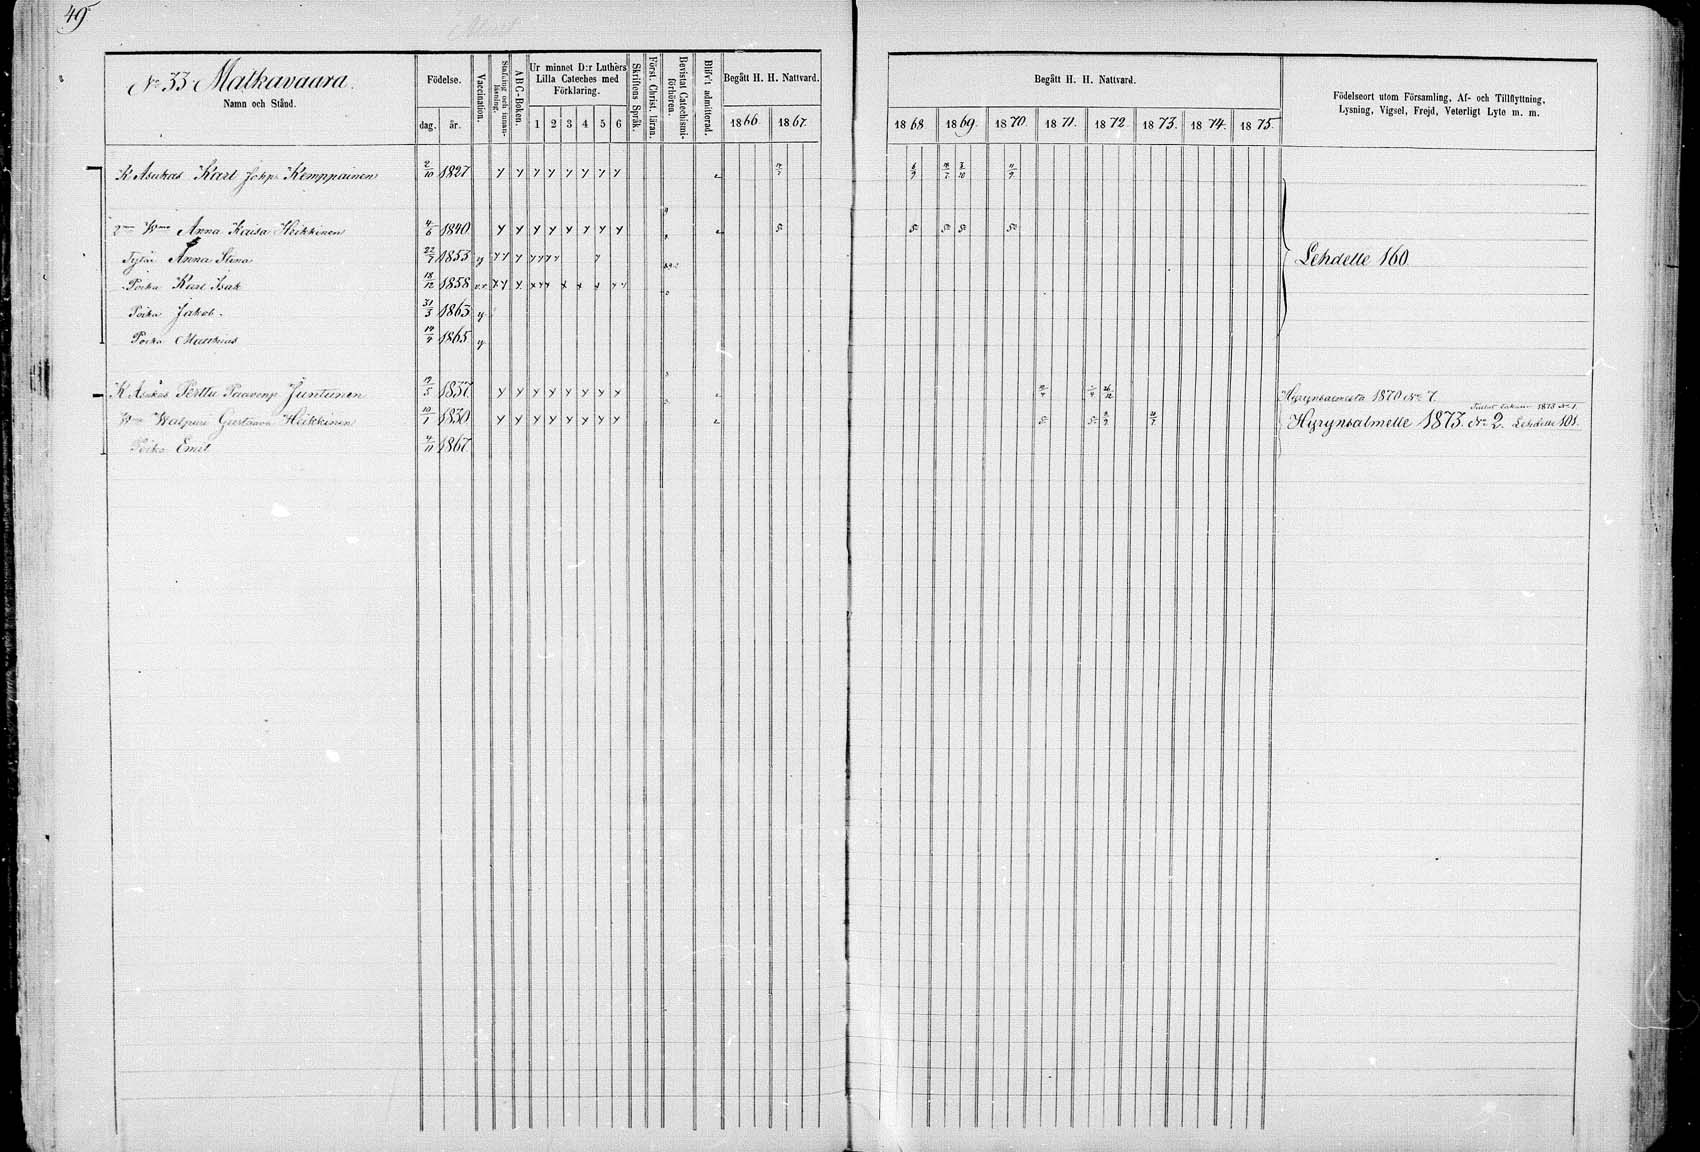 49
No 33. Matkavaara.
Namn och Stånd.
Födelse.
dag. år.
Vaccination.
Stafning och innanläsning.
ABC-Boken.
Ur minnet D:r Luthers Lilla Cateches med Förklaring.
1 2 3 4 5 6
Skriftens Språk.
Först. Christ. läran.
Bevistat Catechismiförhören.
Blifv't admitterad.
Begått H. H. Nattvard.
1866. 1867.
Begått H. H. Nattvard.
1868. 1869. 1870. 1871. 1872. 1873. 1874. 1875.
Födelseort utom Församling, Af- och Tillflyttning,
Lysning, Vigsel, Frejd, Veterligt Lyte m. m.
K Asukas Karl Johp. Kemppainen 2/10 1827
2 Wmo Anna Kaisa Heikkinen 4/6 1840
Tytär Anna Stina 22/7 1855 y
Lehdelle 160
Poika Karl Isak 18/12 1858
Poika Jakob 31/3 1863 y
Poika Matthias 1865 y
K Asukas Perttu Paavonp. Juntunen 19/5 1837
Hyrynsalmesta 1870 No 7.
Wmo Walpuri Gustaava Heikkinen 10/1 1830
Hyrynsalmelle 1873. No 2. Lehdelle 101.
1873 No 1.
Poika Emil 4/11 1867